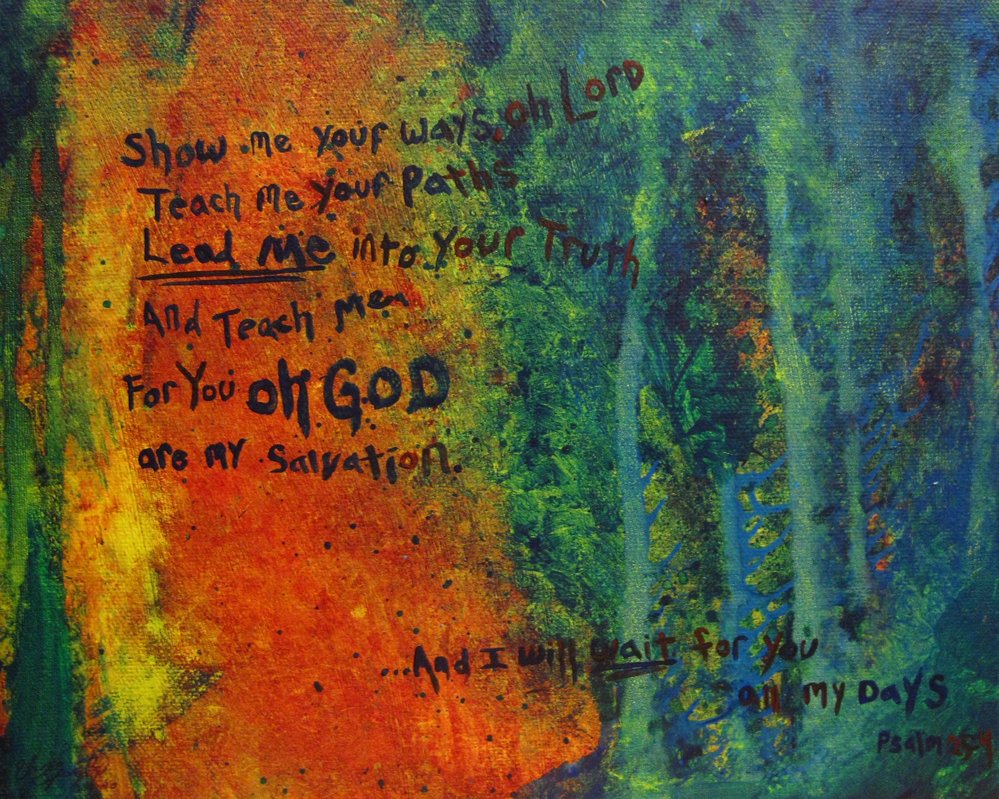 Show me your ways, oh Lord
Teach me your paths
Lead me into your Truth
And Teach Me
For You oh GOD
are my Salvation.
...And I will wait for you
all my DAYS
Psalm